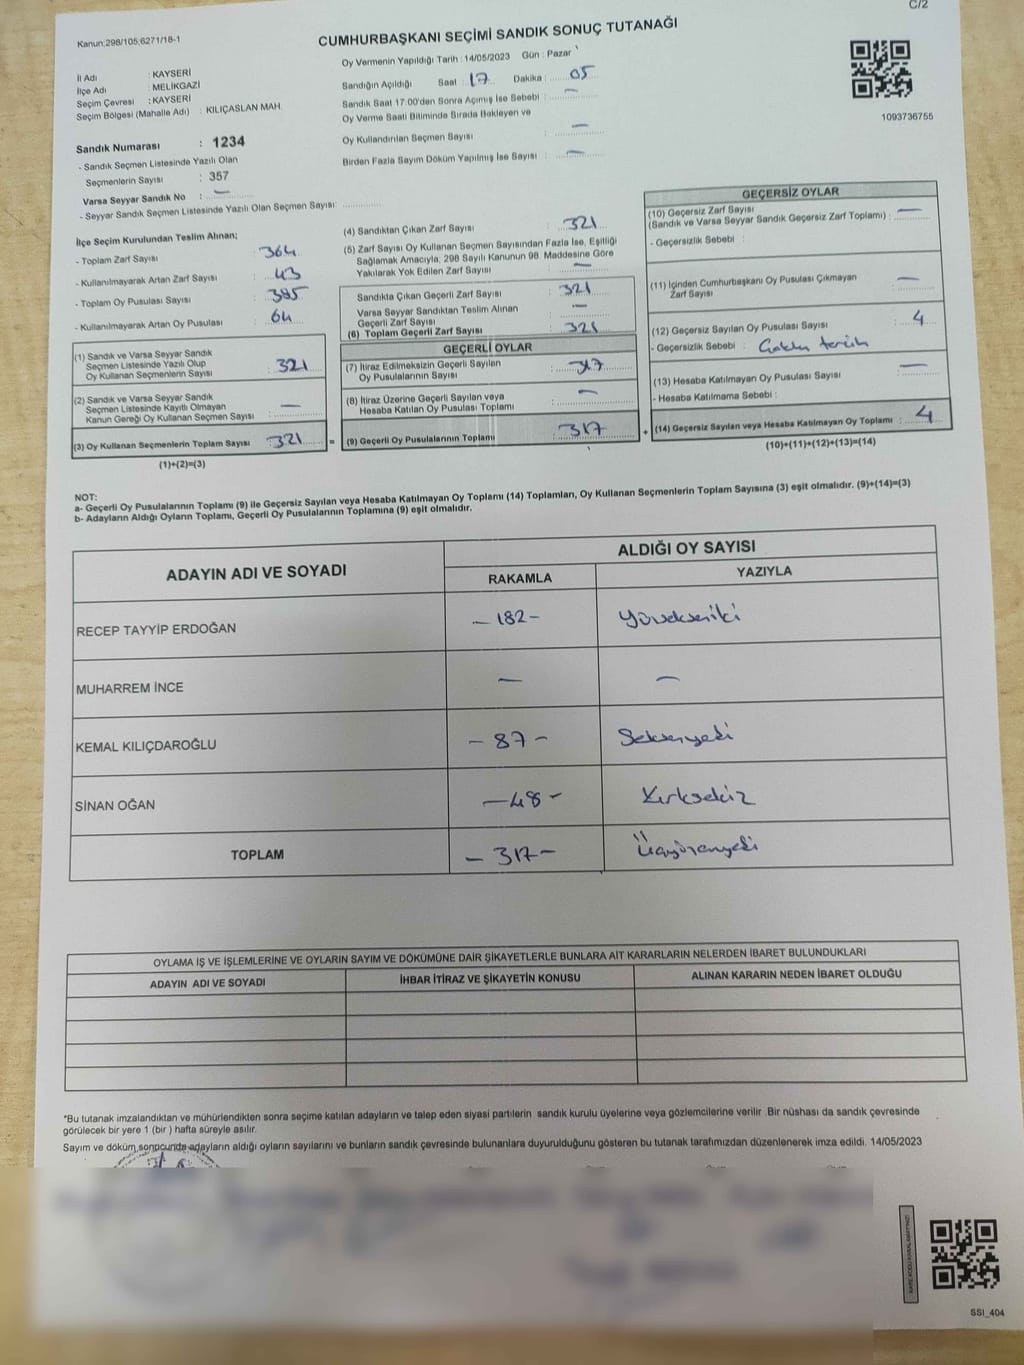 C/2
Kanun:298/105;6271/18-1
CUMHURBAŞKANI SEÇİMİ SANDIK SONUÇ TUTANAĞI
İl Adı : KAYSERİ
İlçe Adı : MELİKGAZİ
Seçim Çevresi : KAYSERİ
Seçim Bölgesi (Mahalle Adı) : KILIÇASLAN MAH
Oy Vermenin Yapıldığı Tarih : 14/05/2023 Gün : Pazar
Sandığın Açıldığı Saat : 17 Dakika : 05
Sandık Saat 17:00'den Sonra Açımış İse Sebebi : —
Oy Verme Saati Bitiminde Sırada Bekleyen ve
Oy Kullandırılan Seçmen Sayısı : —
Birden Fazla Sayım Döküm Yapılmış İse Sayısı : —
1093736755
Sandık Numarası : 1234
- Sandık Seçmen Listesinde Yazılı Olan
Seçmenlerin Sayısı : 357
Varsa Seyyar Sandık No : —
- Seyyar Sandık Seçmen Listesinde Yazılı Olan Seçmen Sayısı:
İlçe Seçim Kurulundan Teslim Alınan;
- Toplam Zarf Sayısı : 364
- Kullanılmayarak Artan Zarf Sayısı : 43
- Toplam Oy Pusulası Sayısı : 385
- Kullanılmayarak Artan Oy Pusulası : 64
(1) Sandık ve Varsa Seyyar Sandık
Seçmen Listesinde Yazılı Olup
Oy Kullanan Seçmenlerin Sayısı : 321
(2) Sandık ve Varsa Seyyar Sandık
Seçmen Listesinde Kayıtlı Olmayan
Kanun Gereği Oy Kullanan Seçmen Sayısı : —
(3) Oy Kullanan Seçmenlerin Toplam Sayısı : 321 =
(1)+(2)=(3)
(4) Sandıktan Çıkan Zarf Sayısı : 321
(5) Zarf Sayısı Oy Kullanan Seçmen Sayısından Fazla İse, Eşitliği
Sağlamak Amacıyla; 298 Sayılı Kanunun 98. Maddesine Göre
Yakılarak Yok Edilen Zarf Sayısı : —
Sandıkta Çıkan Geçerli Zarf Sayısı : 321
Varsa Seyyar Sandıktan Teslim Alınan
Geçerli Zarf Sayısı : —
(6) Toplam Geçerli Zarf Sayısı : 321
GEÇERLİ OYLAR
(7) İtiraz Edilmeksizin Geçerli Sayılan
Oy Pusulalarının Sayısı : 317
(8) İtiraz Üzerine Geçerli Sayılan veya
Hesaba Katılan Oy Pusulası Toplamı : —
(9) Geçerli Oy Pusulalarının Toplamı : 317 +
GEÇERSİZ OYLAR
(10) Geçersiz Zarf Sayısı
(Sandık ve Varsa Seyyar Sandık Geçersiz Zarf Toplamı) : —
- Geçersizlik Sebebi :
(11) İçinden Cumhurbaşkanı Oy Pusulası Çıkmayan
Zarf Sayısı : —
(12) Geçersiz Sayılan Oy Pusulası Sayısı : 4
- Geçersizlik Sebebi : Çoklu tercih
(13) Hesaba Katılmayan Oy Pusulası Sayısı : —
- Hesaba Katılmama Sebebi :
(14) Geçersiz Sayılan veya Hesaba Katılmayan Oy Toplamı : 4
(10)+(11)+(12)+(13)=(14)
NOT:
a- Geçerli Oy Pusulalarının Toplamı (9) ile Geçersiz Sayılan veya Hesaba Katılmayan Oy Toplamı (14) Toplamları, Oy Kullanan Seçmenlerin Toplam Sayısına (3) eşit olmalıdır. (9)+(14)=(3)
b- Adayların Aldığı Oyların Toplamı, Geçerli Oy Pusulalarının Toplamına (9) eşit olmalıdır.
ADAYIN ADI VE SOYADI
ALDIĞI OY SAYISI
RAKAMLA YAZIYLA
RECEP TAYYİP ERDOĞAN -182- Yüzsekseniki
MUHARREM İNCE — —
KEMAL KILIÇDAROĞLU -87- Seksenyedi
SİNAN OĞAN -48- Kırksekiz
TOPLAM -317- Üçyüzonyedi
OYLAMA İŞ VE İŞLEMLERİNE VE OYLARIN SAYIM VE DÖKÜMÜNE DAİR ŞİKAYETLERLE BUNLARA AİT KARARLARIN NELERDEN İBARET BULUNDUKLARI
ADAYIN ADI VE SOYADI İHBAR İTİRAZ VE ŞİKAYETİN KONUSU ALINAN KARARIN NEDEN İBARET OLDUĞU
*Bu tutanak imzalandıktan ve mühürlendikten sonra seçime katılan adayların ve talep eden siyasi partilerin sandık kurulu üyelerine veya gözlemcilerine verilir .Bir nüshası da sandık çevresinde
görülecek bir yere 1 (bir ) hafta süreyle asılır.
Sayım ve döküm sonucunda adayların aldığı oyların sayılarını ve bunların sandık çevresinde bulunanlara duyurulduğunu gösteren bu tutanak tarafımızdan düzenlenerek imza edildi. 14/05/2023
SSI_404